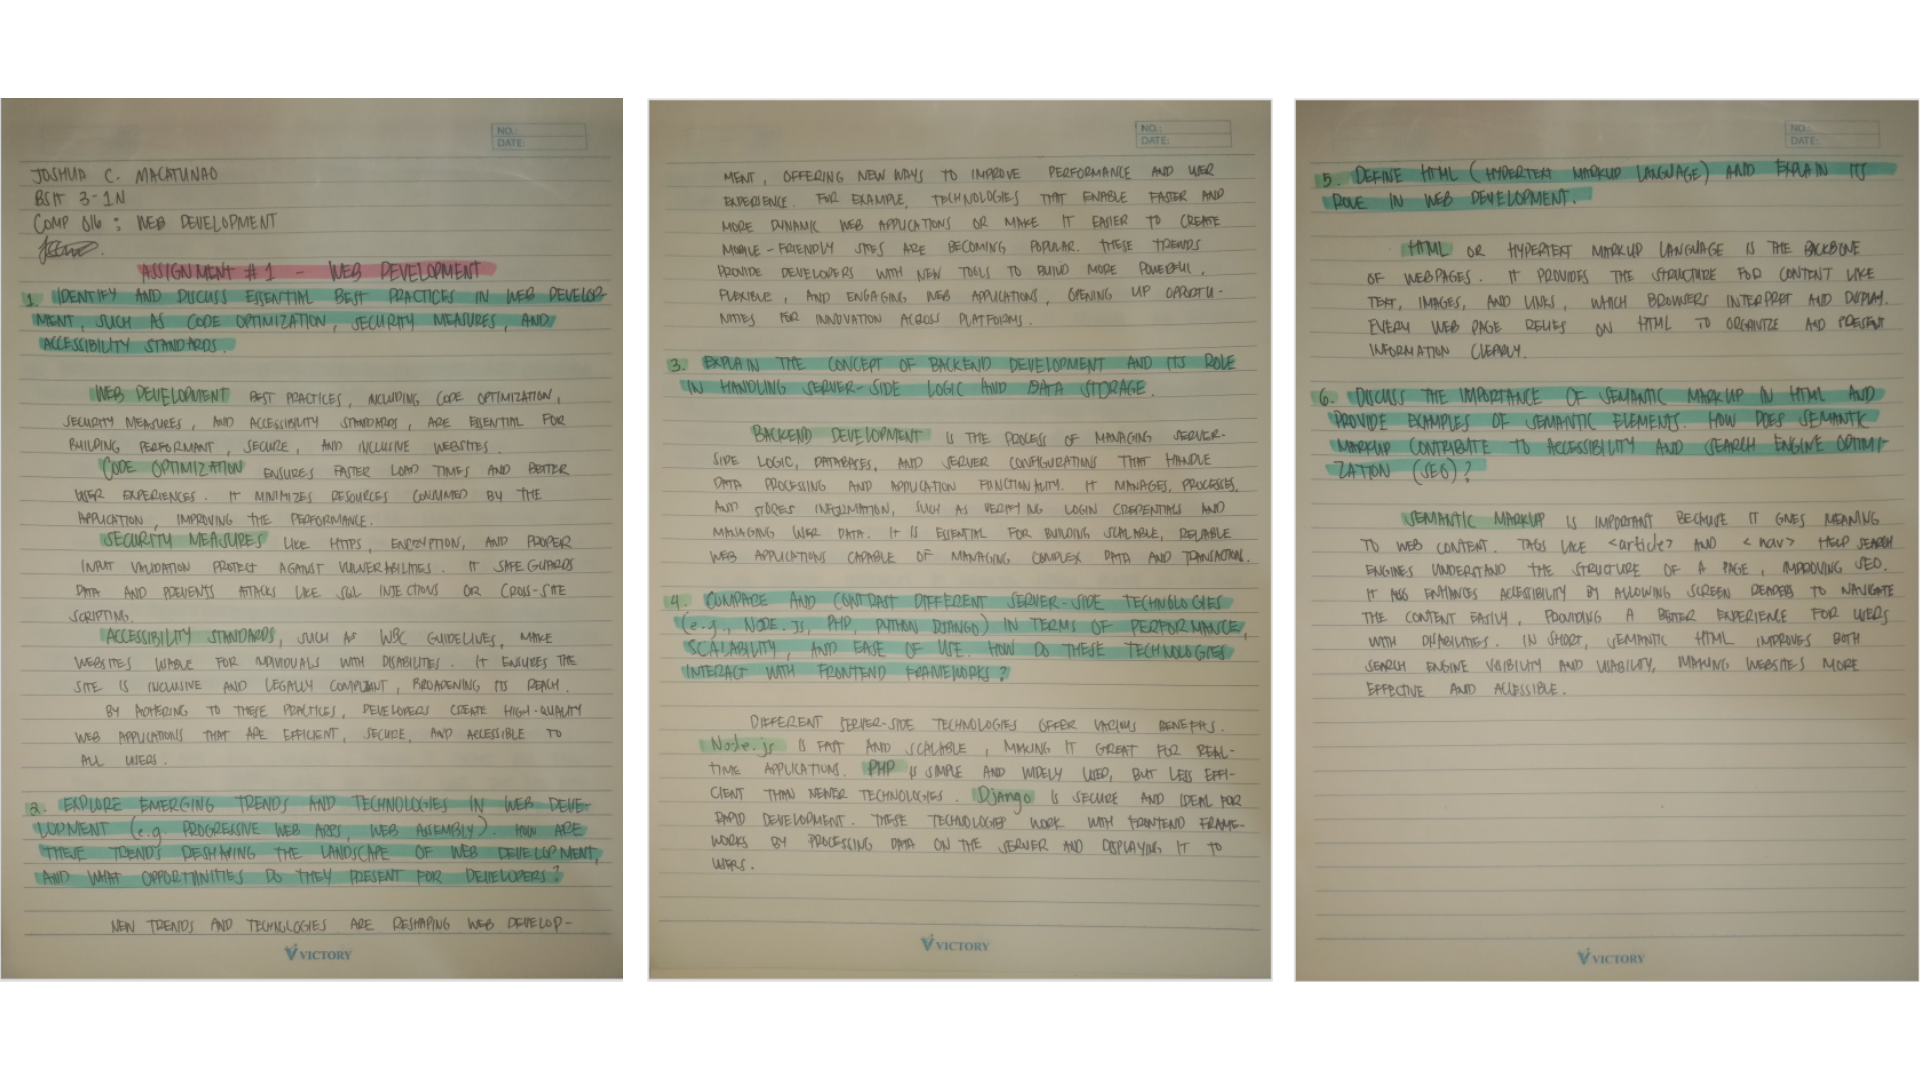 NO.:
DATE:
JOSHUA C. MACATUNAO
BSIT 3-1N
COMP 016 : WEB DEVELOPMENT
ASSIGNMENT #1 - WEB DEVELOPMENT
1. IDENTIFY AND DISCUSS ESSENTIAL BEST PRACTICES IN WEB DEVELOP-
MENT, SUCH AS CODE OPTIMIZATION, SECURITY MEASURES, AND
ACCESSIBILITY STANDARDS.
WEB DEVELOPMENT BEST PRACTICES, INCLUDING CODE OPTIMIZATION,
SECURITY MEASURES, AND ACCESSIBILITY STANDARDS, ARE ESSENTIAL FOR
BUILDING PERFORMANT, SECURE, AND INCLUSIVE WEBSITES.
CODE OPTIMIZATION ENSURES FASTER LOAD TIMES AND BETTER
USER EXPERIENCES. IT MINIMIZES RESOURCES CONSUMED BY THE
APPLICATION, IMPROVING THE PERFORMANCE.
SECURITY MEASURES LIKE HTTPS, ENCRYPTION, AND PROPER
INPUT VALIDATION PROTECT AGAINST VULNERABILITIES. IT SAFEGUARDS
DATA AND PREVENTS ATTACKS LIKE SQL INJECTIONS OR CROSS-SITE
SCRIPTING.
ACCESSIBILITY STANDARDS, SUCH AS W3C GUIDELINES, MAKE
WEBSITES USABLE FOR INDIVIDUALS WITH DISABILITIES. IT ENSURES THE
SITE IS INCLUSIVE AND LEGALLY COMPLIANT, BROADENING ITS REACH.
BY ADHERING TO THESE PRACTICES, DEVELOPERS CREATE HIGH-QUALITY
WEB APPLICATIONS THAT ARE EFFICIENT, SECURE, AND ACCESSIBLE TO
ALL USERS.
2. EXPLORE EMERGING TRENDS AND TECHNOLOGIES IN WEB DEVE-
LOPMENT (e.g. PROGRESSIVE WEB APPS, WEB ASSEMBLY). HOW ARE
THESE TRENDS RESHAPING THE LANDSCAPE OF WEB DEVELOPMENT,
AND WHAT OPPORTUNITIES DO THEY PRESENT FOR DEVELOPERS?
NEW TRENDS AND TECHNOLOGIES ARE RESHAPING WEB DEVELOP-
VICTORY
NO.:
DATE:
MENT, OFFERING NEW WAYS TO IMPROVE PERFORMANCE AND USER
EXPERIENCE. FOR EXAMPLE, TECHNOLOGIES THAT ENABLE FASTER AND
MORE DYNAMIC WEB APPLICATIONS OR MAKE IT EASIER TO CREATE
MOBILE-FRIENDLY SITES ARE BECOMING POPULAR. THESE TRENDS
PROVIDE DEVELOPERS WITH NEW TOOLS TO BUILD MORE POWERFUL,
FLEXIBLE, AND ENGAGING WEB APPLICATIONS, OPENING UP OPPORTU-
NITIES FOR INNOVATION ACROSS PLATFORMS.
3. EXPLAIN THE CONCEPT OF BACKEND DEVELOPMENT AND ITS ROLE
IN HANDLING SERVER-SIDE LOGIC AND DATA STORAGE.
BACKEND DEVELOPMENT IS THE PROCESS OF MANAGING SERVER-
SIDE LOGIC, DATABASES, AND SERVER CONFIGURATIONS THAT HANDLE
DATA PROCESSING AND APPLICATION FUNCTIONALITY. IT MANAGES, PROCESSES,
AND STORES INFORMATION, SUCH AS VERIFYING LOGIN CREDENTIALS AND
MANAGING USER DATA. IT IS ESSENTIAL FOR BUILDING SCALABLE, RELIABLE
WEB APPLICATIONS CAPABLE OF MANAGING COMPLEX DATA AND TRANSACTION.
4. COMPARE AND CONTRAST DIFFERENT SERVER-SIDE TECHNOLOGIES
(e.g., NODE.JS, PHP, PYTHON DJANGO) IN TERMS OF PERFORMANCE,
SCALABILITY, AND EASE OF USE. HOW DO THESE TECHNOLOGIES
INTERACT WITH FRONTEND FRAMEWORKS?
DIFFERENT SERVER-SIDE TECHNOLOGIES OFFER VARIOUS BENEFITS.
Node.js IS FAST AND SCALABLE, MAKING IT GREAT FOR REAL-
TIME APPLICATIONS. PHP IS SIMPLE AND WIDELY USED, BUT LESS EFFI-
CIENT THAN NEWER TECHNOLOGIES. Django IS SECURE AND IDEAL FOR
RAPID DEVELOPMENT. THESE TECHNOLOGIES WORK WITH FRONTEND FRAME-
WORKS BY PROCESSING DATA ON THE SERVER AND DISPLAYING IT TO
USERS.
VICTORY
NO.:
DATE:
5. DEFINE HTML (HYPERTEXT MARKUP LANGUAGE) AND EXPLAIN ITS
ROLE IN WEB DEVELOPMENT.
HTML OR HYPERTEXT MARKUP LANGUAGE IS THE BACKBONE
OF WEBPAGES. IT PROVIDES THE STRUCTURE FOR CONTENT LIKE
TEXT, IMAGES, AND LINKS, WHICH BROWSERS INTERPRET AND DISPLAY.
EVERY WEB PAGE RELIES ON HTML TO ORGANIZE AND PRESENT
INFORMATION CLEARLY.
6. DISCUSS THE IMPORTANCE OF SEMANTIC MARKUP IN HTML AND
PROVIDE EXAMPLES OF SEMANTIC ELEMENTS. HOW DOES SEMANTIC
MARKUP CONTRIBUTE TO ACCESSIBILITY AND SEARCH ENGINE OPTIMI-
ZATION (SEO)?
SEMANTIC MARKUP IS IMPORTANT BECAUSE IT GIVES MEANING
TO WEB CONTENT. TAGS LIKE <article> AND <nav> HELP SEARCH
ENGINES UNDERSTAND THE STRUCTURE OF A PAGE, IMPROVING SEO.
IT ALSO ENHANCES ACCESSIBILITY BY ALLOWING SCREEN READERS TO NAVIGATE
THE CONTENT EASILY, PROVIDING A BETTER EXPERIENCE FOR USERS
WITH DISABILITIES. IN SHORT, SEMANTIC HTML IMPROVES BOTH
SEARCH ENGINE VISIBILITY AND USABILITY, MAKING WEBSITES MORE
EFFECTIVE AND ACCESSIBLE.
VICTORY